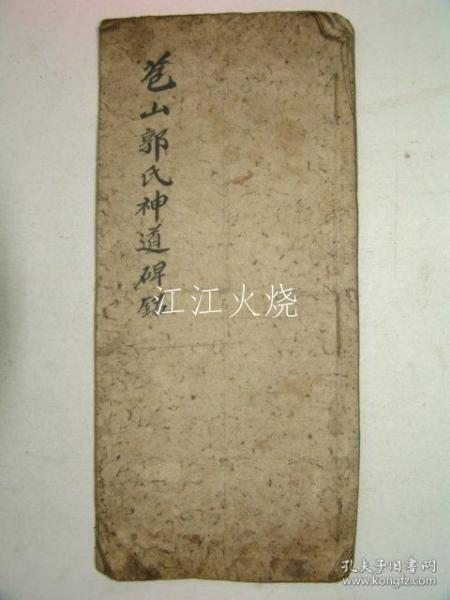 苞山郭氏神道碑銘
江江火烧
孔夫子旧书网
www.kongfz.com